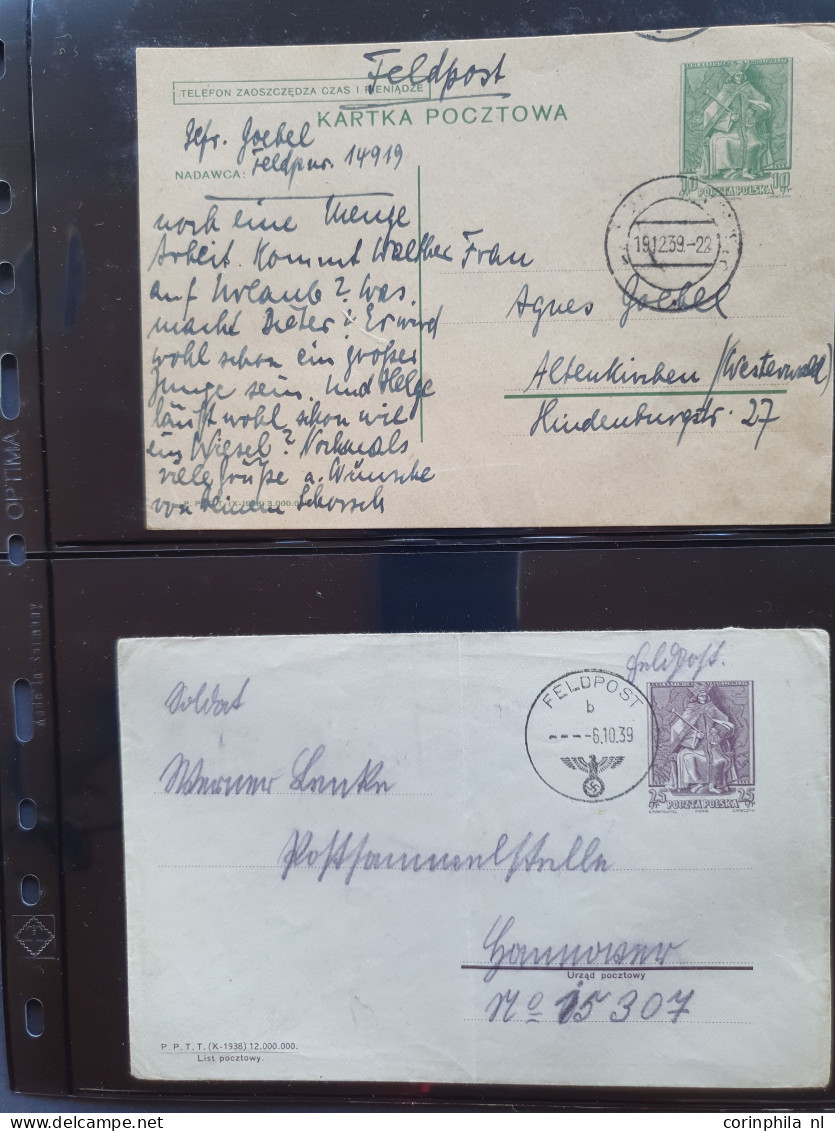 Feldpost
TELEFON ZAOSZCZĘDZA CZAS I PIENIĄDZE
KARTKA POCZTOWA
Gefr. Goebel
Feldpnr. 14919
NADAWCA:
10 10
POCZTA POLSKA
19.12.39.-22
noch eine Menge
Arbeit. Kommt Walther
auf Urlaub? Was
macht Dieter? Er wird
wohl schon ein großer
Junge sein. Und Helge
läuft wohl schon wie
ein Wiesel? Nochmals
viele Grüße u. Wünsche
von Deinem Schorsch
Frau
Agnes Goebel
Altenkirchen (Westerwald)
Hindenburgstr. 27
OPTIMA
Made in Germany
Feldpost.
FELDPOST
b
- - - -6.10.39
25 25
POCZTA POLSKA
Soldat
Werner Lanke
Postsammelstelle
Hannover
Urząd pocztowy
No 15307
P. P. T. T. (X-1938) 12.000.000.
List pocztowy.
corinphila nl